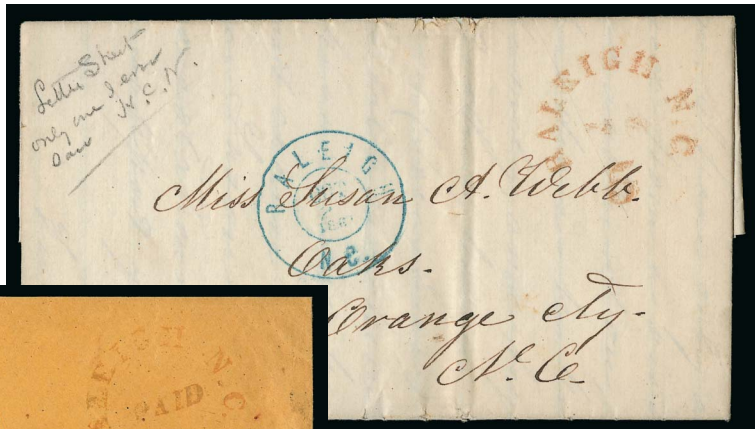 Letter Sheet
only one I ever
saw H.C.N.
RALEIGH N.C
RALEIGH
N.C.
Miss Susan A. Webb.
Oaks.
Orange Cty.
N. C.
RALEIGH N C
PAID